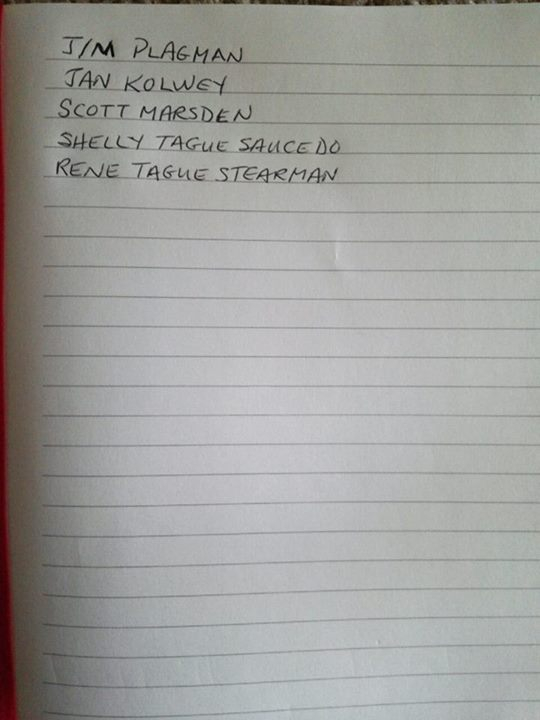 JIM PLAGMAN
JAN KOLWEY
SCOTT MARSDEN
SHELLY TAGUE SAUCEDO
RENE TAGUE STEARMAN